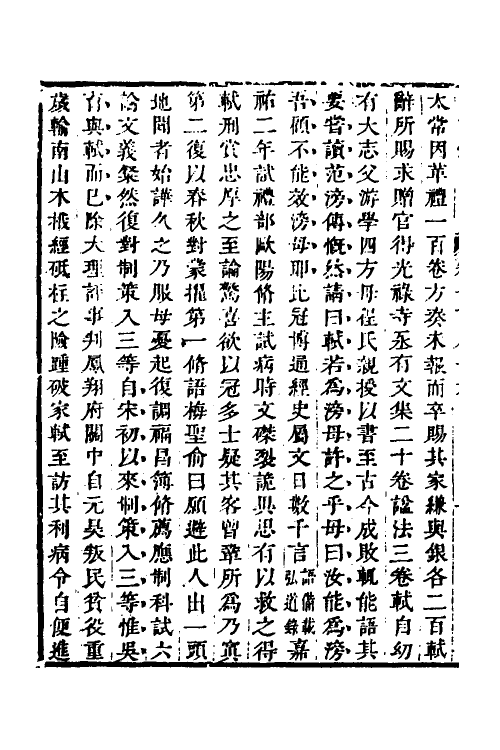 太常因革禮一百卷方奏未報而卒賜其家縑與銀各二百軾
辭所賜求贈官得光祿寺丞有文集二十卷諡法三卷軾自幼
有大志父游學四方母程氏親授以書至古今成敗輒能語其
要嘗讀范滂傳慨然請曰軾若為滂母許之乎母曰汝能為滂
吾顧不能效滂母耶比冠博通經史屬文日數千言語備載弘道錄嘉
祐二年試禮部歐陽脩主試病時文磔裂詭異思有以救之得
軾刑賞忠厚之至論驚喜欲以冠多士疑其客曾鞏所為乃寘
第二復以春秋對義擢第一脩語梅聖俞曰願避此人出一頭
地聞者始譁久之乃服母憂起復調福昌簿脩薦應制科試六
論文義粲然復對制策入三等自宋初以來制策入三等惟吳
育與軾而已除大理評事判鳳翔府關中自元昊叛民貧役重
歲輸南山木栰經砥柱之險踵破家軾至訪其利病令自便進